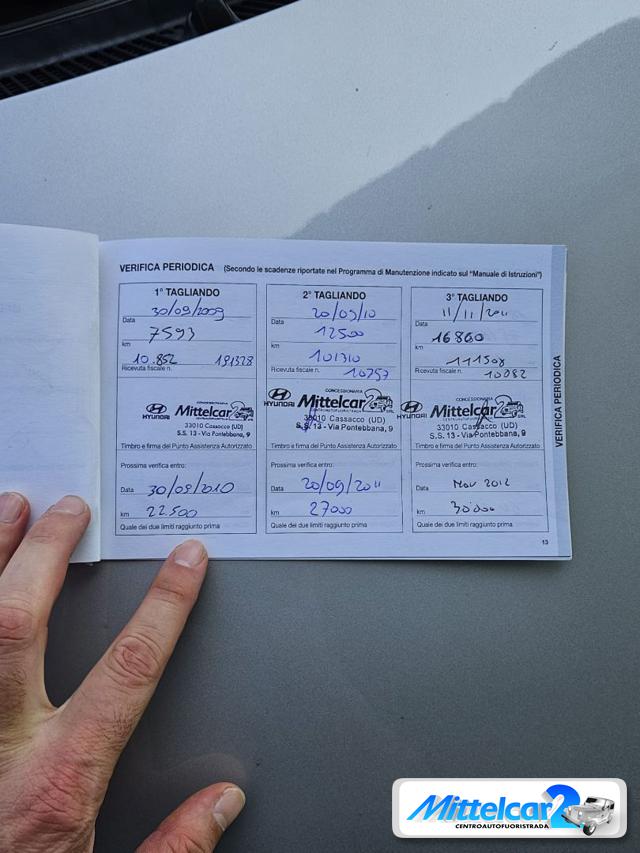 VERIFICA PERIODICA (Secondo le scadenze riportate nel Programma di Manutenzione indicato sul "Manuale di Istruzioni")
1° TAGLIANDO
30/09/2009
Data
7593
km
10.852 191328
Ricevuta fiscale n.
HYUNDAI Mittelcar2
33010 CASSACCO (UD)
S.S. 13 - Via Pontebbana, 9
Timbro e firma del Punto Assistenza Autorizzato
Prossima verifica entro:
Data 30/09/2010
km 22.500
Quale dei due limiti raggiunto prima
2° TAGLIANDO
20/09/10
Data
12500
km
101310
Ricevuta fiscale n. 10757
CONCESSIONARIA
HYUNDAI Mittelcar2
33010 CASSACCO (UD)
S.S. 13 - Via Pontebbana, 9
Timbro e firma del Punto Assistenza Autorizzato
Prossima verifica entro:
Data 20/09/2011
km 27000
Quale dei due limiti raggiunto prima
3° TAGLIANDO
11/11/2011
Data
16860
km
111508
Ricevuta fiscale n. 10082
CONCESSIONARIA
HYUNDAI Mittelcar2
33010 CASSACCO (UD)
S.S. 13 - Via Pontebbana, 9
Timbro e firma del Punto Assistenza Autorizzato
Prossima verifica entro:
Data Nov 2012
km 30000
Quale dei due limiti raggiunto prima
VERIFICA PERIODICA
13
Mittelcar2
CENTROAUTOFUORISTRADA